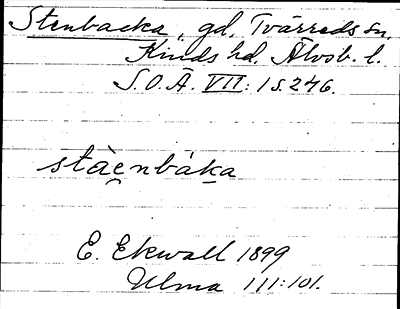 Stenbacka, gd, Tvärreds sn,
Kinds hd. Älvsb. l.
S.O.Ä. VII:1 s. 246.
stàenbáka
E. Ekwall 1899
Ulma 111:101.